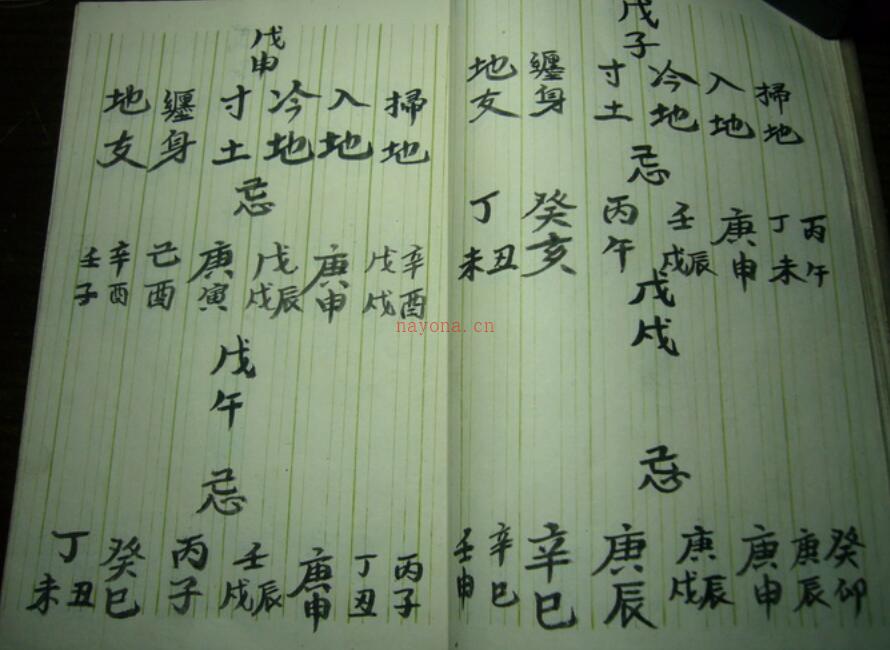 戊子
掃地 入地 冷地 寸土 纏身 地支
忌
丙午 丁未 庚申 壬辰戌 丙午 癸亥 丁丑未
戊戌
忌
癸卯 庚辰 庚申 庚辰戌 庚辰 辛巳 辛巳 壬申
戊申
掃地 入地 冷地 寸土 纏身 地支
忌
辛酉 戊戌 庚申 戊辰戌 庚寅 己酉 辛酉 壬子
戊午
忌
丙子 丁丑 庚申 壬辰戌 丙子 癸巳 丁丑未
nayona.cn